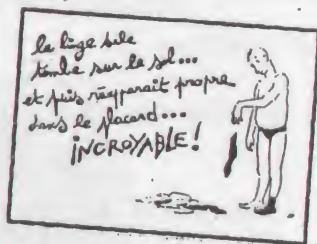 le linge sale
tombe sur le sol...
et puis réapparait propre
dans le placard...
INCROYABLE!